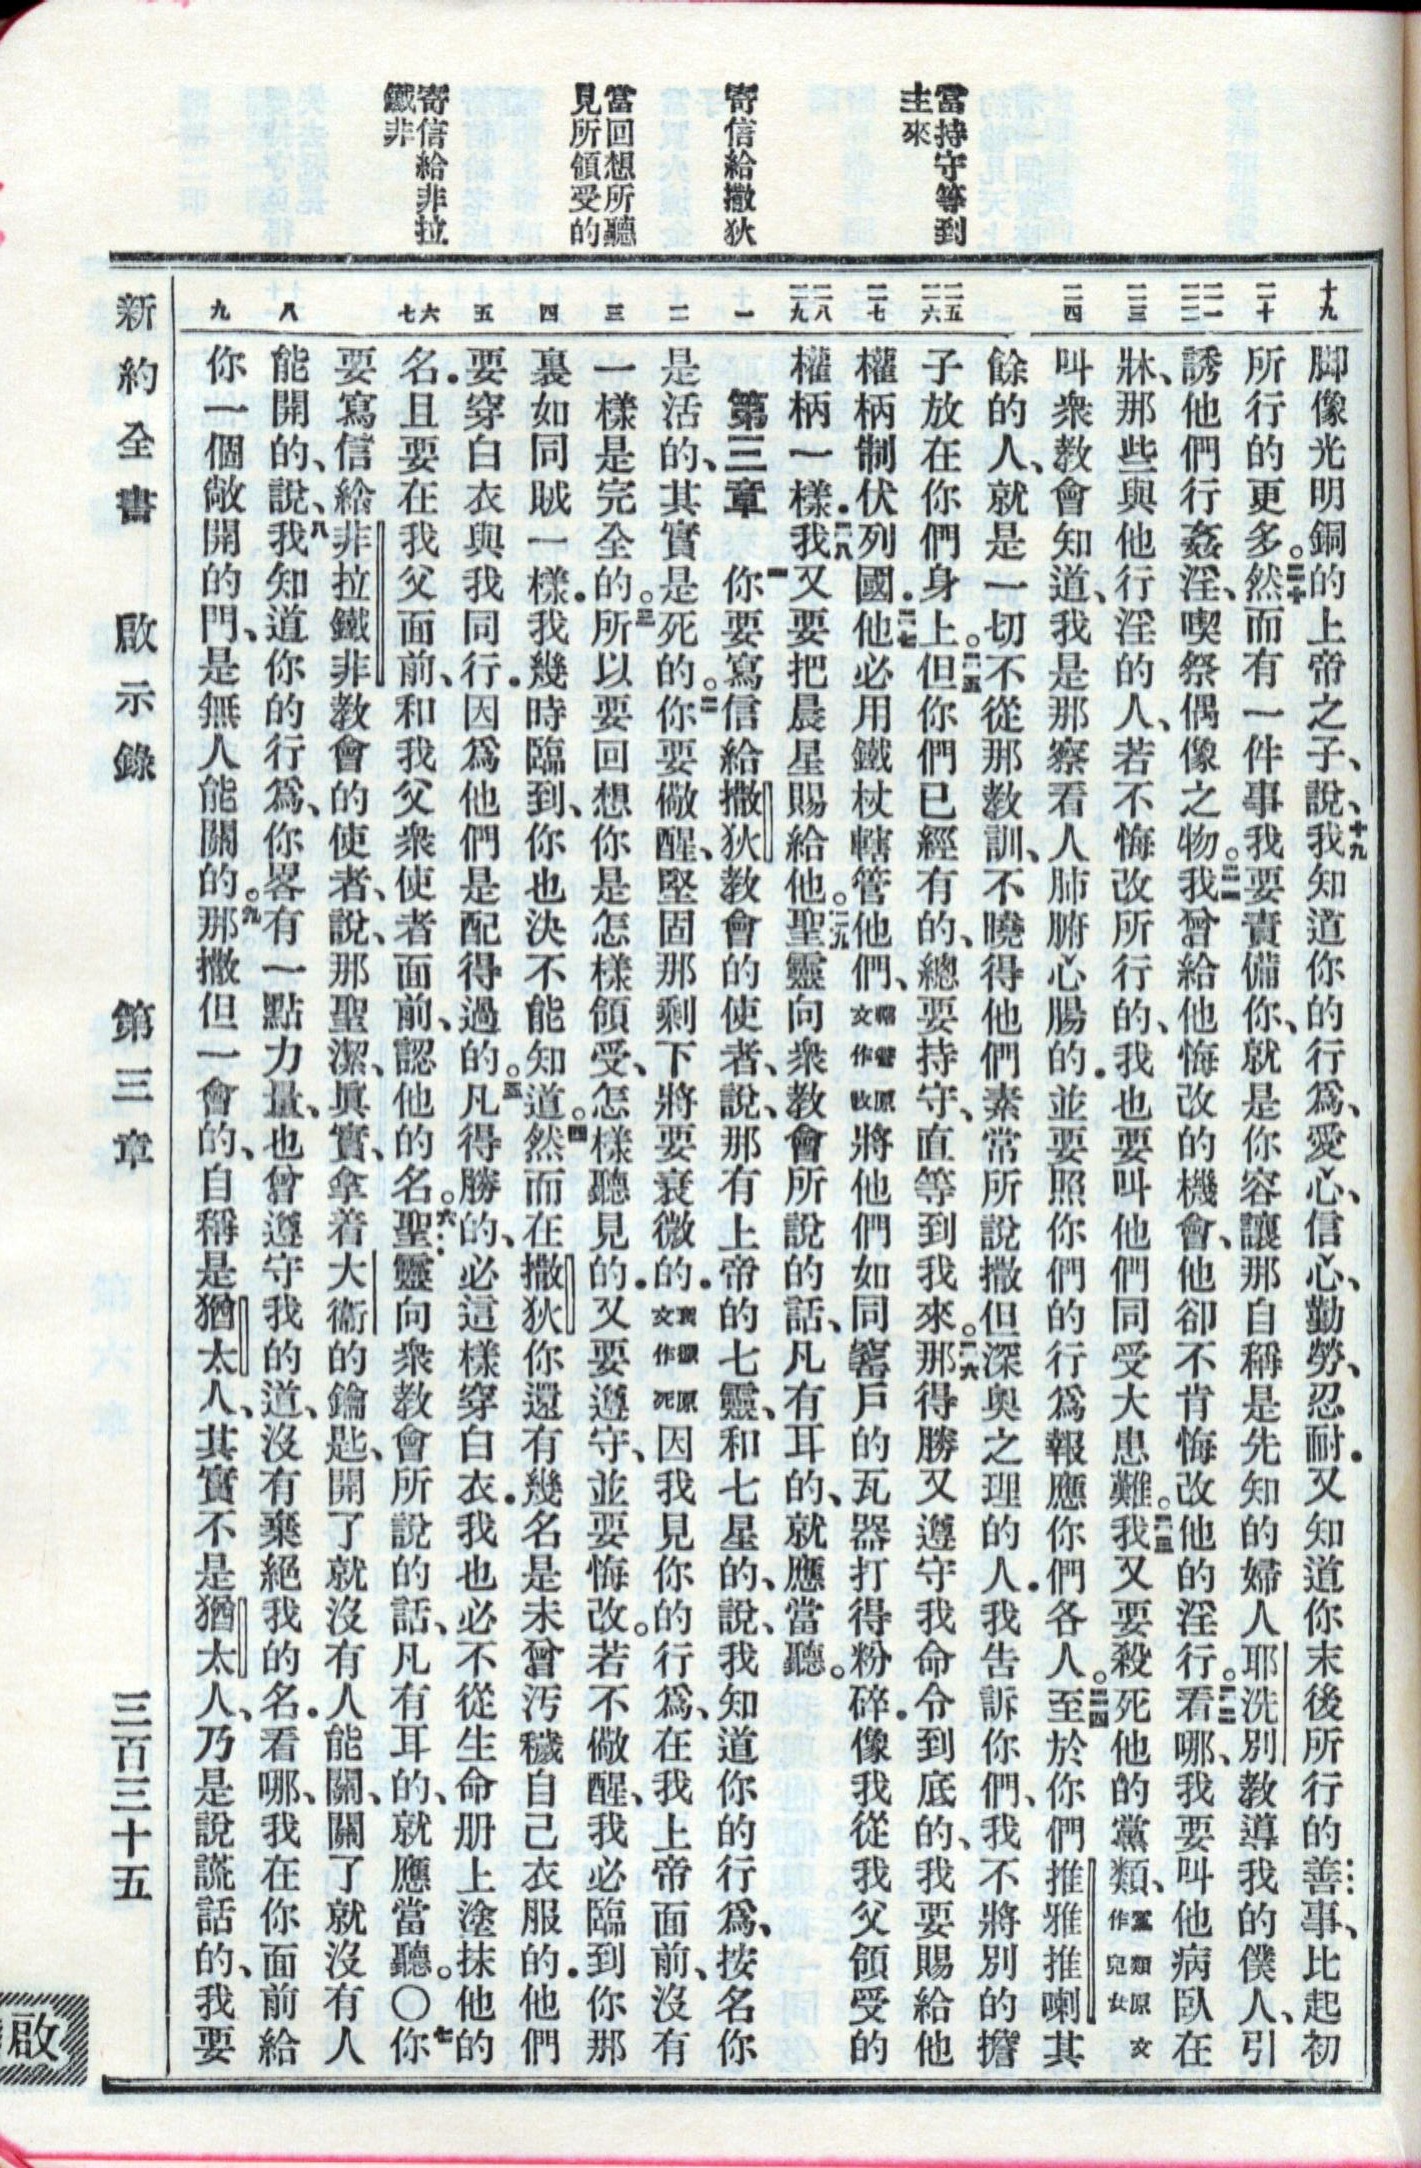 當持守等到
主來
寄信給撒狄
當回想所聽
見所領受的
寄信給非拉
鐵非
十九
二十
二一
二二
二三
二四
二五
二六
二七
二八
二九
一
二
三
四
五
六
七
八
九
脚像光明銅的上帝之子、說、十九我知道你的行爲、愛心、信心、勤勞、忍耐．又知道你末後所行的善事、比起初
所行的更多。二十然而有一件事我要責備你、就是你容讓那自稱是先知的婦人耶洗別教導我的僕人、引
誘他們行姦淫、喫祭偶像之物。二一我曾給他悔改的機會、他卻不肯悔改他的淫行。二二看哪、我要叫他病臥在
牀、那些與他行淫的人、若不悔改所行的、我也要叫他們同受大患難。二三我又要殺死他的黨類、黨類原文作兒女
叫衆教會知道、我是那察看人肺腑心腸的．並要照你們的行爲報應你們各人。二四至於你們推雅推喇其
餘的人、就是一切不從那教訓、不曉得他們素常所說撒但深奥之理的人．我告訴你們、我不將別的擔
子放在你們身上。二五但你們已經有的、總要持守、直等到我來。二六那得勝又遵守我命令到底的、我要賜給他
權柄制伏列國．二七他必用鐵杖轄管他們、轄管原文作牧將他們如同窰戶的瓦器打得粉碎．像我從我父領受的
權柄一樣．二八我又要把晨星賜給他。二九聖靈向衆教會所說的話、凡有耳的、就應當聽。
第三章　一你要寫信給撒狄教會的使者、說、那有上帝的七靈、和七星的、說、我知道你的行爲、按名你
是活的、其實是死的。二你要儆醒、堅固那剩下將要衰微的．衰微原文作死因我見你的行爲、在我上帝面前、沒有
一樣是完全的。三所以要回想你是怎樣領受、怎樣聽見的．又要遵守、並要悔改。若不儆醒、我必臨到你那
裏如同賊一樣．我幾時臨到、你也決不能知道。四然而在撒狄你還有幾名是未曾污穢自己衣服的．他們
要穿白衣與我同行．因爲他們是配得過的。五凡得勝的、必這樣穿白衣．我也必不從生命册上塗抹他的
名．且要在我父面前、和我父衆使者面前、認他的名。六聖靈向衆教會所說的話、凡有耳的、就應當聽。〇七你
要寫信給非拉鐵非教會的使者、說、那聖潔、眞實、拿着大衞的鑰匙、開了就沒有人能關、關了就沒有人
能開的、說、八我知道你的行爲、你畧有一點力量、也曾遵守我的道、沒有棄絕我的名．看哪、我在你面前給
你一個敞開的門、是無人能關的。九那撒但一會的、自稱是猶太人、其實不是猶太人、乃是說謊話的、我要
新約全書　啟示錄　第三章　三百三十五
啟